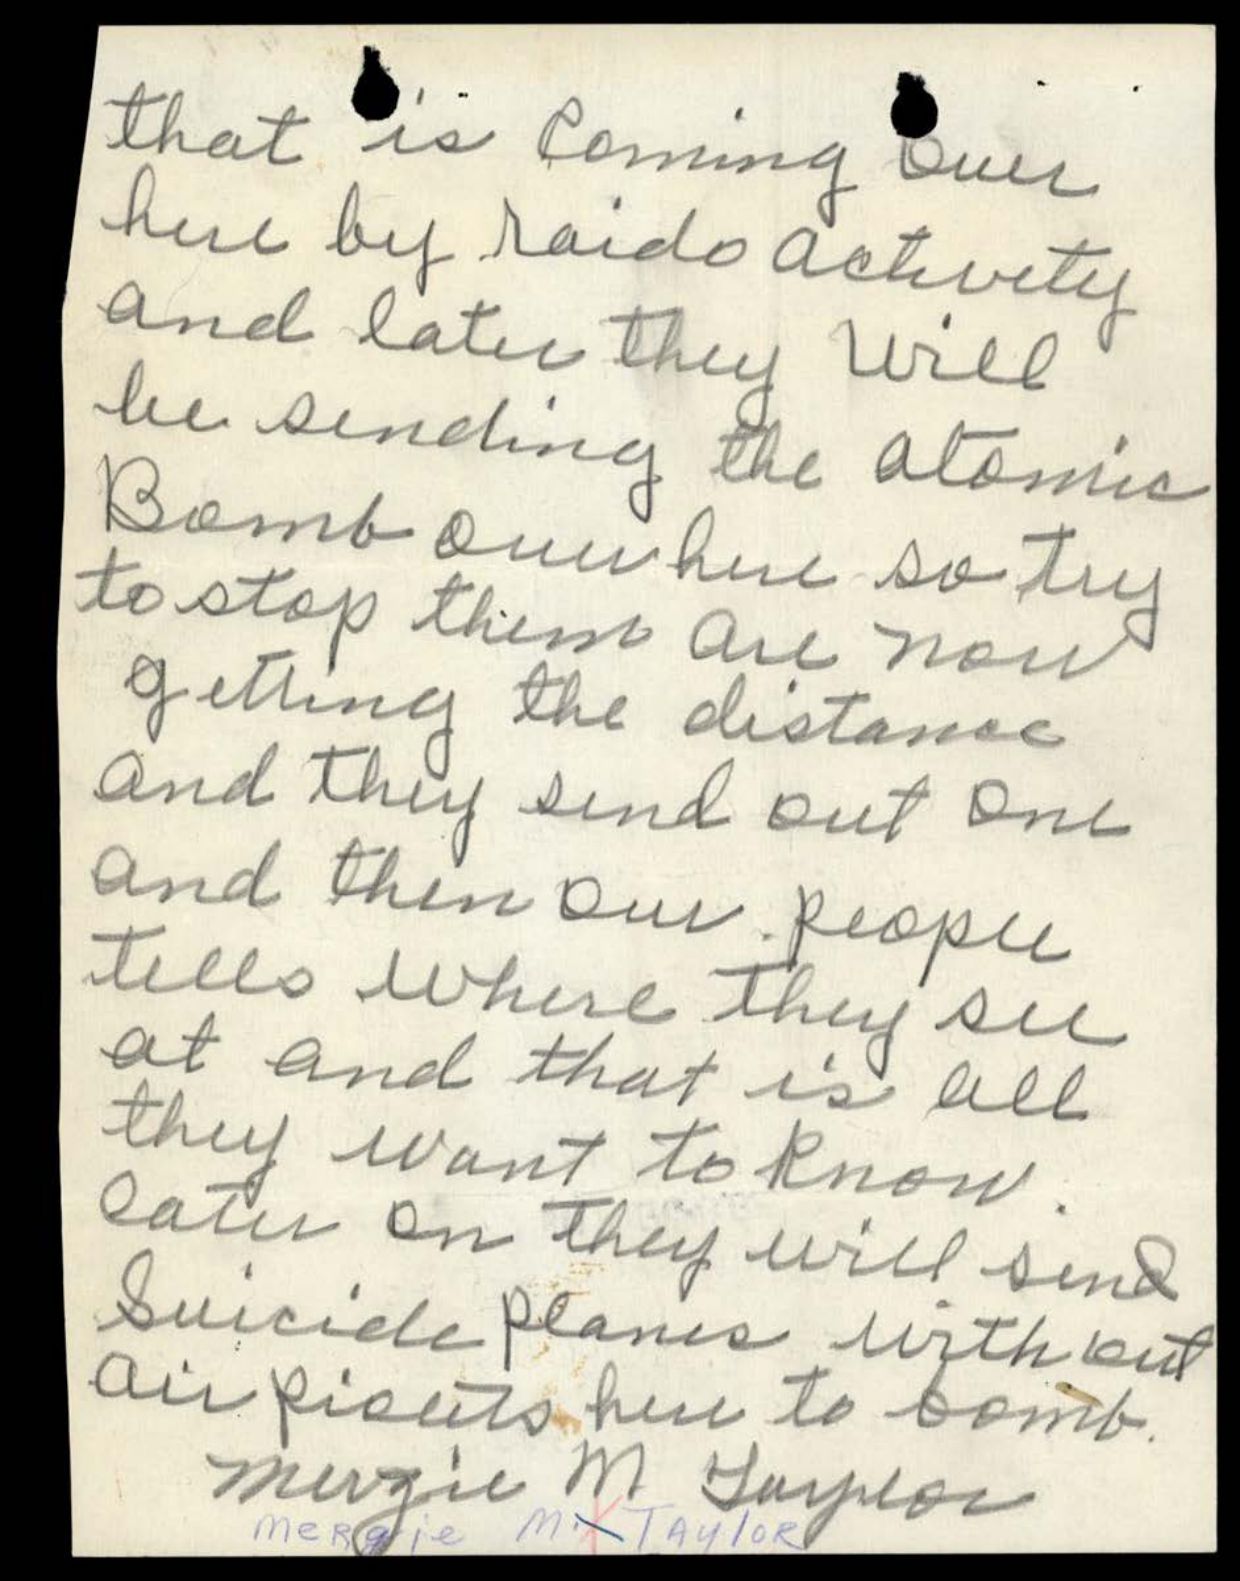 that is Coming over
here by raido activety
and later they will
be sending the atomic
Bomb over here so try
to stop them are now
getting the distance
and they send out one
and then our people
tells where they see
at and that is all
they want to know.
later on they will send
Suicide planes without
air piolets here to bomb.
Mergie M Taylor
Mergie M. Taylor